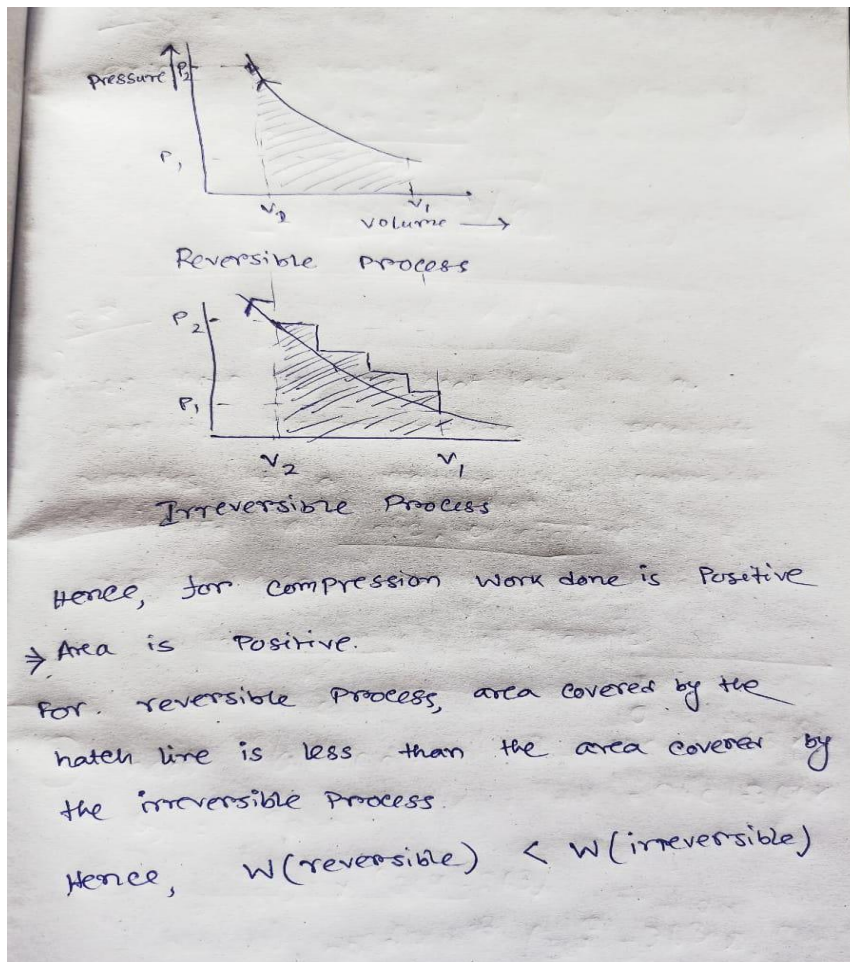 Pressure
P2
P1
V2
V1
Volume →
Reversible Process
P2
P1
V2
V1
Irreversible Process
Hence, for compression work done is Positive
⇒ Area is Positive.
For reversible Process, area covered by the
hatch line is less than the area covered by
the irreversible Process.
Hence, W(reversible) < W(irreversible)